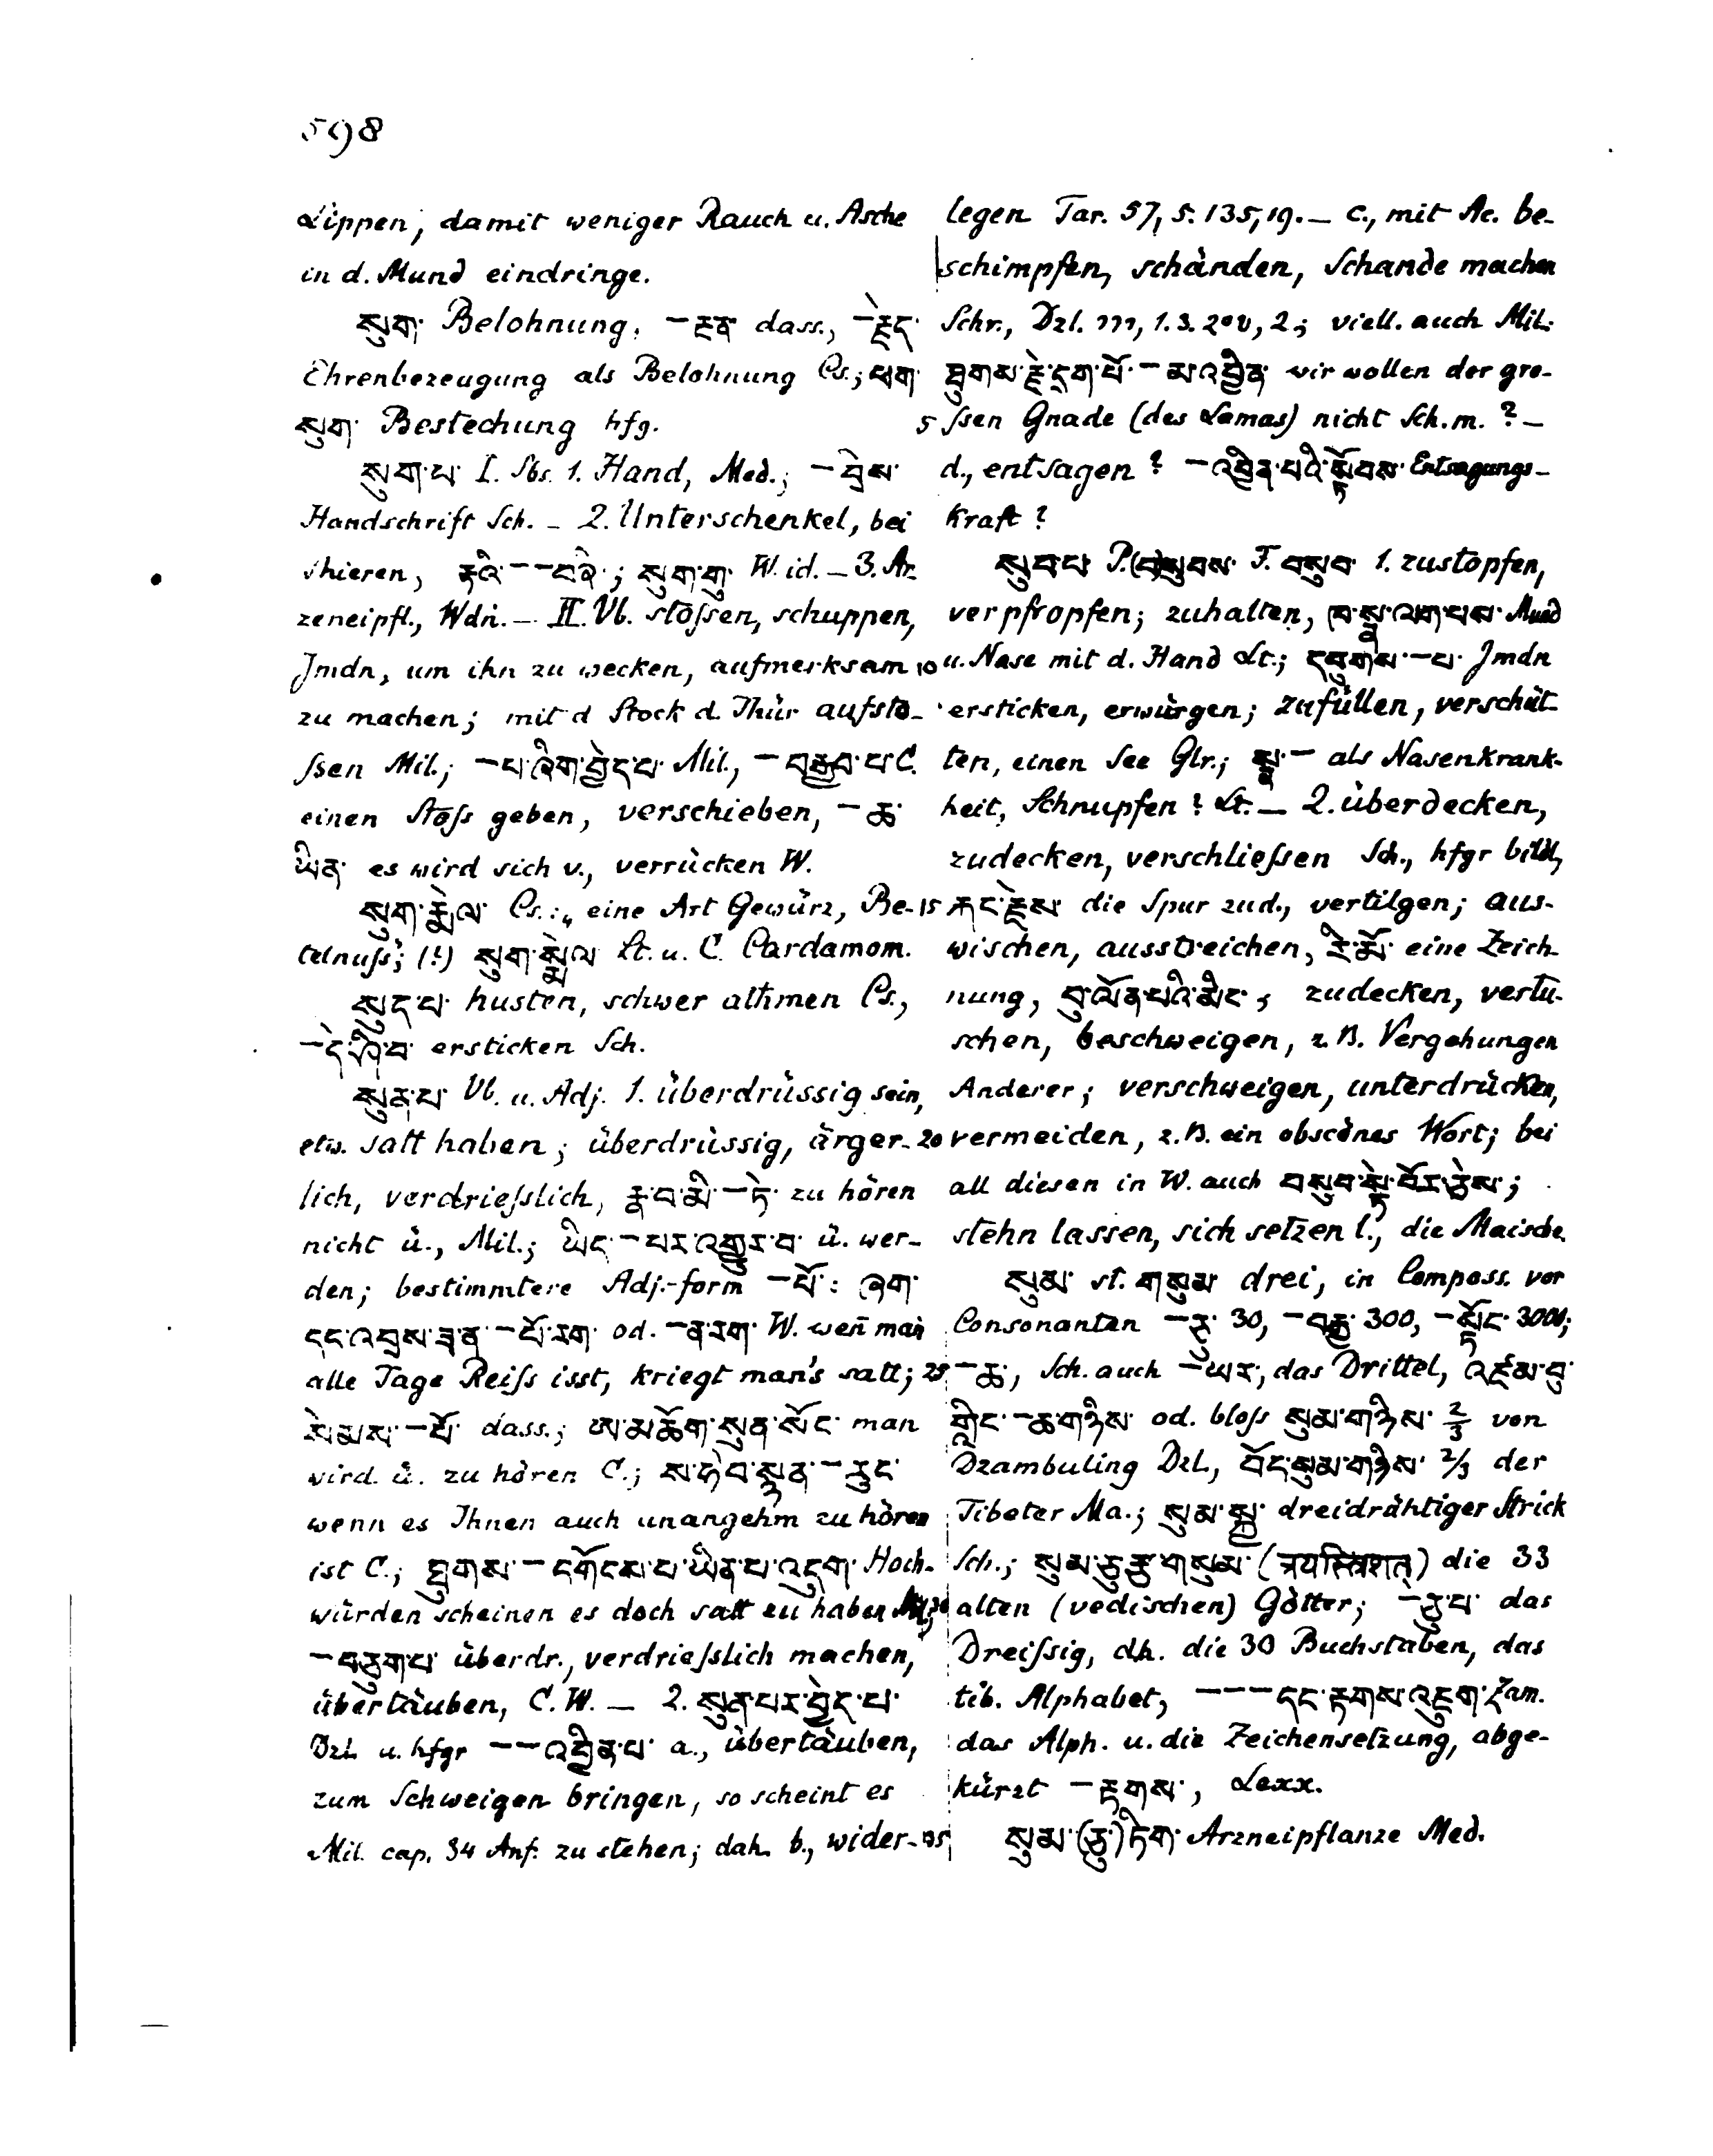 598
Lippen, damit weniger Rauch u. Asche
in d. Mund eindringe.
སུག་ Belohnung, –རྔན་ dass., –རྗེད་
Ehrenbezeugung als Belohnung Cs.; ཕག་
སུག་ Bestechung hfg.
སུག་པ་ I. Sbs. 1. Hand, Med.; –བྲིས་
Handschrift Sch. – 2. Unterschenkel, bei
Thieren, རྟའི་ – –བཞི་; སུག་གུ་ W. id. – 3. Ar-
zeneipfl., Wdn. – II. Vb. stossen, schuppen,
Jmdn, um ihn zu wecken, aufmerksam
zu machen; mit d Stock d. Thür aufsto-
ssen Mil.; –པ་ཞིག་བྱེད་པ་ Mil., –བརྒྱབ་པ་ C.
einen Stoss geben, verschieben, –ཆ་
ཡིན་ es wird sich v., verrücken W.
སུག་རྨེལ་ Cs.: „eine Art Gewürz, Be-
telnuss“; (!) སུག་སྨེལ་ Lt. u. C. Cardamom.
སུད་པ་ husten, schwer athmen Cs.,
–དེ་ཤི་བ་ ersticken Sch.
སུན་པ་ Vb. u. Adj. 1. überdrüssig sein,
etw. satt haben; überdrüssig, ärger-
lich, verdriesslich, རྣ་བ་མི་–ཏེ་ zu hören
nicht ü., Mil.; ཡིད་–པར་འགྱུར་བ་ ü. wer-
den; bestimmtere Adj.-form –པོ་: ཞག་
དང་འབྲས་ཟ་ན་–པོ་རག་ od. –ན་རག་ W. wen̄ man
alle Tage Reiss isst, kriegt man's satt;
སེམས་–པོ་ dass.; ཨ་མཆོག་སུན་སོང་ man
wird ü. zu hören C.; ས་ཧེབ་སྙན་–རུང་
wenn es Ihnen auch unangehm zu hören
ist C.; ཐུགས་–དགོངས་པ་ཡིན་པ་འདུག་ Hoch-
würden scheinen es doch satt zu haben Mil.;
–བཅུག་པ་ überdr., verdriesslich machen,
übertäuben, C. W. – 2. སུན་པར་བྱེད་པ་
Dzl. u. hfgr – –འབྱིན་པ་ a., übertäuben,
zum Schweigen bringen, so scheint es
Mil. cap. 34 Anf. zu stehen; dah. b., wider-
legen Tar. 57, 5. 135, 19. – c., mit Ac. be-
schimpfen, schänden, Schande machen
Schr., Dzl. 1. 3. 2; viell. auch Mil.
ཐུགས་རྗེ་དྲག་པོ་–མ་འབྱིན་ wir wollen der gro-
5 ssen Gnade (des Lamas) nicht Sch. m. ? –
d., entsagen? –འབྱིན་པའི་སྟོབས་ Entsagungs-
kraft?
སུབ་པ་ P. (བ)སུབས་ F. བསུབ་ 1. zustopfen,
verpfropfen; zuhalten, ཁ་སྣ་ལག་པས་ Mund
10 u. Nase mit d. Hand Lt.; དབུགས་–པ་ Jmdn
ersticken, erwürgen; zufüllen, verschüt-
ten, einen See Glr.; སྣ་– als Nasenkrank-
heit, Schnupfen? Lt. – 2. überdecken,
zudecken, verschliessen Sch., hfgr bildl,
15 རྐང་རྗེས་ die Spur zud., vertilgen; aus-
wischen, ausstreichen, རི་མོ་ eine Zeich-
nung, བུ་ལོན་པའི་མིང་; zudecken, vertu-
schen, beschweigen, z. B. Vergehungen
Anderer; verschweigen, unterdrücken,
20 vermeiden, z. B. ein obscönes Wort; bei
all diesen in W. auch བསུབ་སྟེ་བོར་ཅེས་;
stehn lassen, sich setzen l., die Maische.
སུམ་ st. གསུམ་ drei, in Composs. vor
Consonanten –ཅུ་ 30, –བརྒྱ་ 300, –སྟོང་ 3000;
25 –ཆ་, Sch. auch –ཡར་, das Drittel, འཛམ་བུ་
གླིང་–ཆ་གཉིས་ od. bloss སུམ་གཉིས་ 2/3 von
Dzambuling Dzl., བོད་སུམ་གཉིས་ 2/3 der
Tibeter Ma.; སུམ་སྒྲ་ dreidrähtiger Strick
Sch.; སུམ་ཅུ་རྩ་གསུམ་ (त्रयस्त्रिंशत्) die 33
30 alten (vedischen) Götter; –ཅུ་པ་ das
Dreissig, dh. die 30 Buchstaben, das
tib. Alphabet, – – –དང་རྟགས་འཇུག་ Zam.
das Alph. u. die Zeichensetzung, abge-
kürzt –རྟགས་, Lexx.
35 སུམ་(ཅུ་)ཏིག་ Arzneipflanze Med.